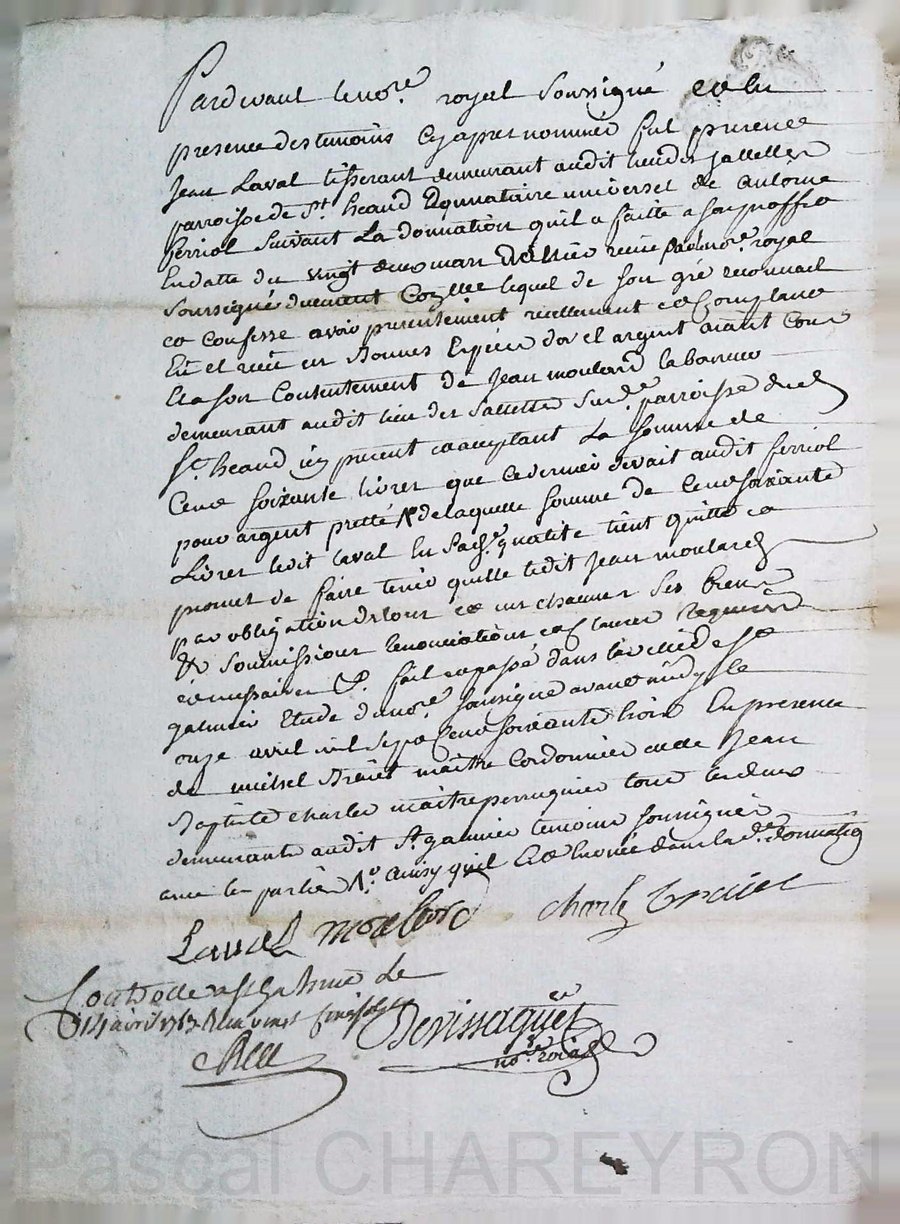 Pardevant le nore. royal soussigné et en
presence des temoins cy apres nommés fut present
Jean Laval tisserant demeurant audit lieu des sallettes
parroisse de St. heand Donnataire universel de antoine
ferriol suivant La donnation qu'il a faitte a son proffit
En datte du vingt deux mars dernier reçue par nore. royal
soussigné duement Conllée lequel de son gré reconnait
et confesse avoir presentement reellement et Comptant
Eu et reçu en Bonnes Espèces d'or et argent aiant Cour
Et a son Contentement de Jean moulard laboureur
demeurant audit lieu des sallettes susde. parroisse dud
St. heand icy present et acceptant La somme de
Cent soixante livres que ce dernier devait audit ferriol
pour argent pretté de laquelle somme de Cent soixante
Livres ledit laval en sa qualité tient quitte et
promet de faire tenir quitte ledit Jean moulard
par obligation de tous et un chacuns ses biens
& soumissions renonciations et clauses requises
et necessaires fait et passé dans la ville de St
galmier Etude du nore. soussigné avant midy le
onze avril mil sept Cent soixante trois En presence
de michel Bruiet maître Cordonnier et de Jean
Baptiste charles maître perruquier tous les deux
demeurants audit St. galmier temoins soussignés
avec les parties ainsy qu'il Est Enoncé dans la de. donnation
Laval moulard charles Bruiet
Controllé a St galmier le
14 avril 1763 Reçu vingt six sols
Devissaguet
nore. roial
Pascal CHAREYRON